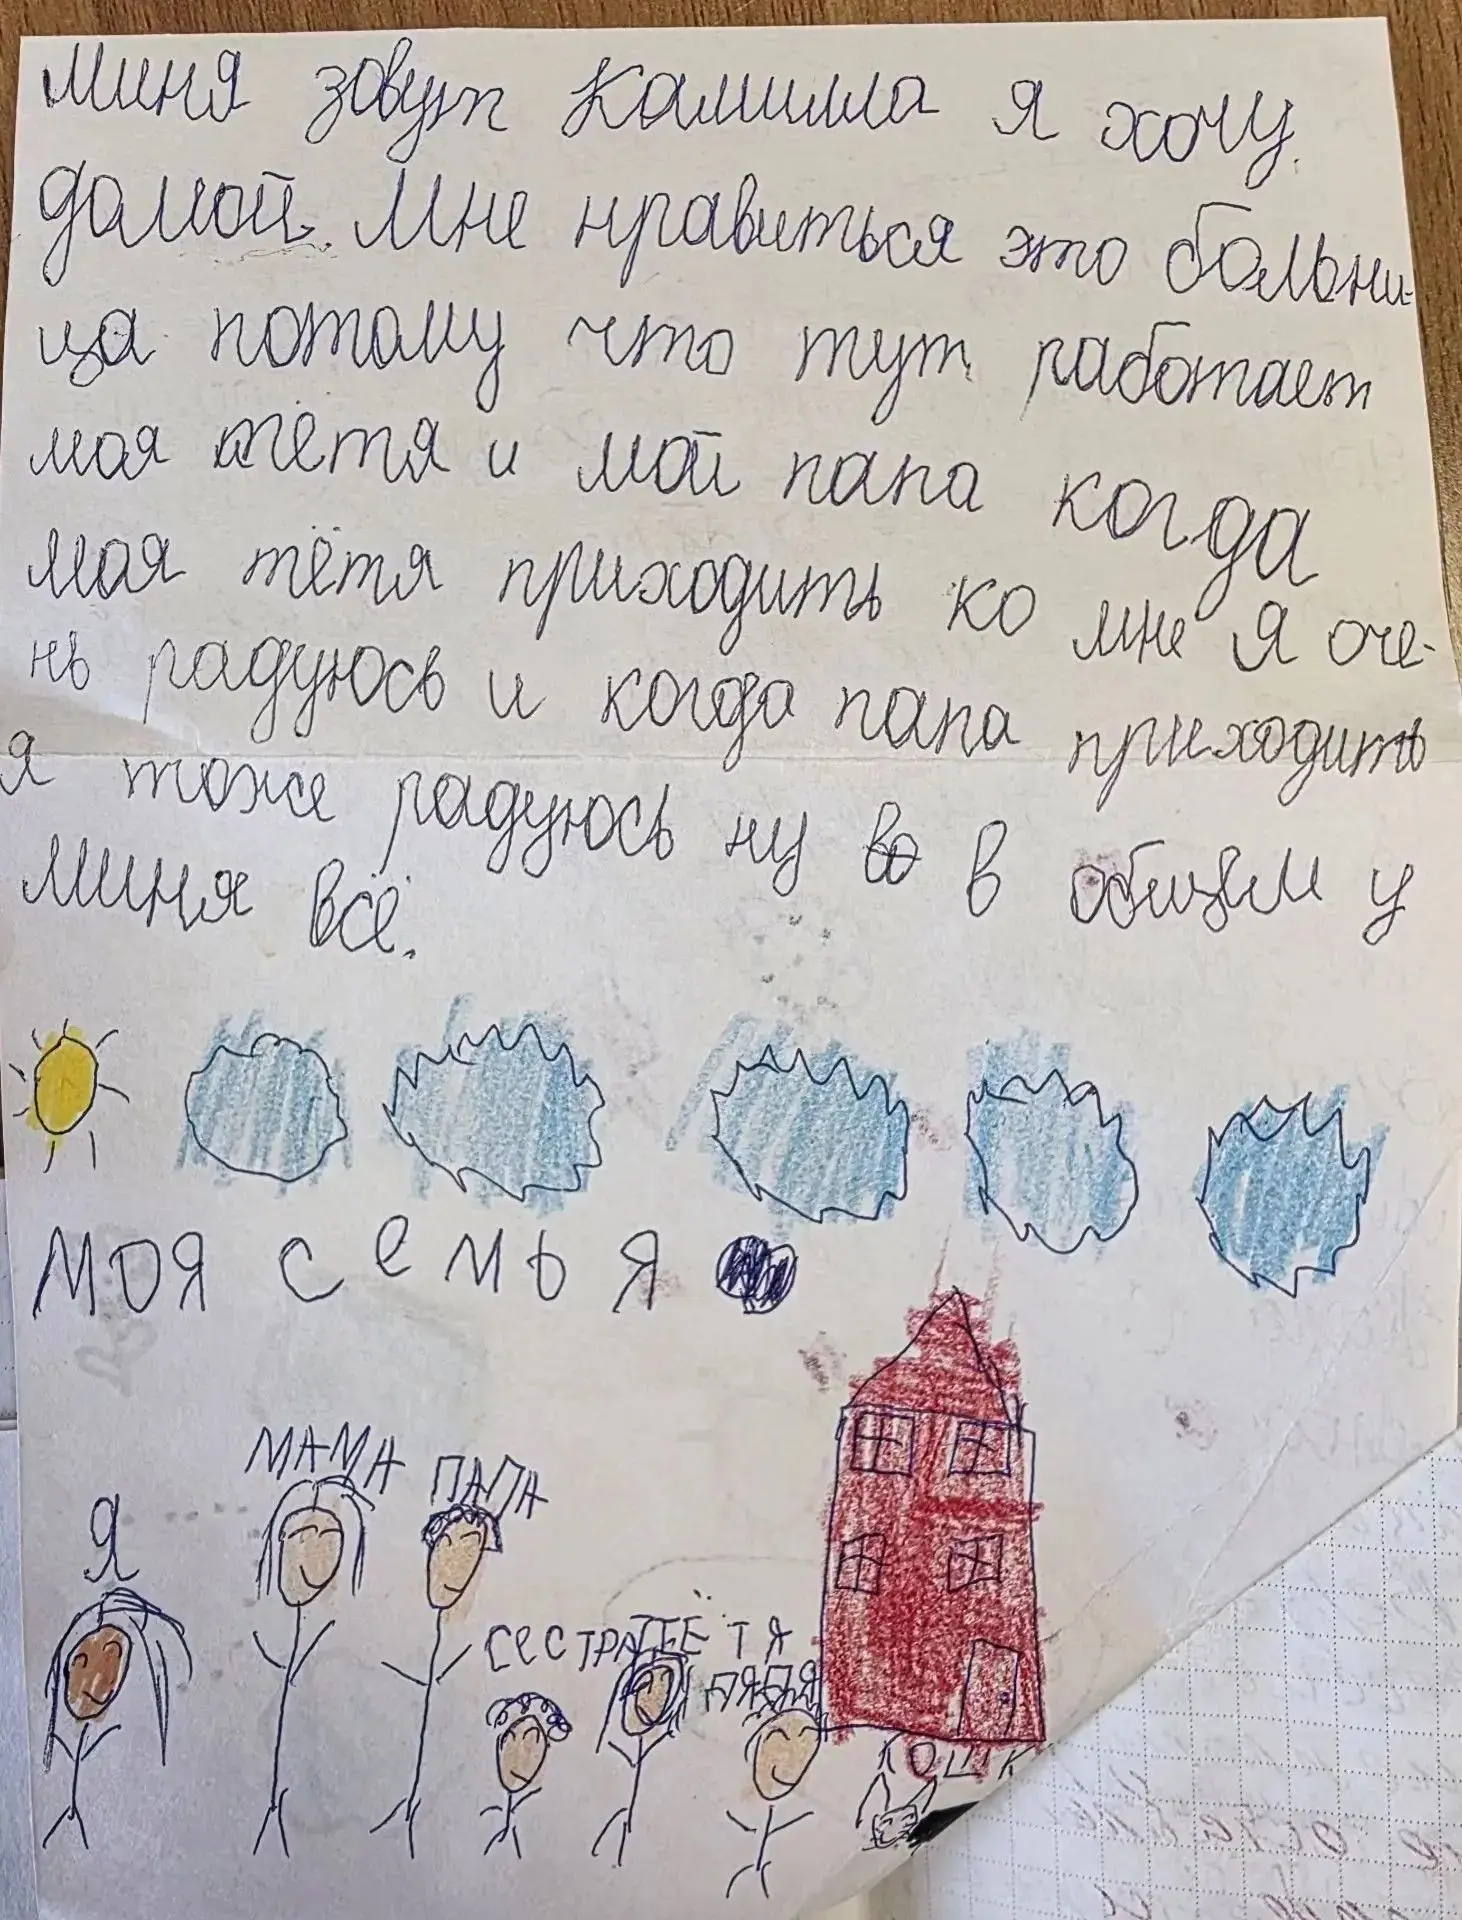 Миня зовут Камилла я хочу
домой. Мне нравиться это больни-
ца потому что тут работает
моя тётя и мой папа когда
моя тётя приходить ко мне я оче-
нь радуюсь и когда папа приходить
я тоже радуюсь ну в общем у
миня всё.
МОЯ СЕМЬЯ
Я
МАМА
ПАПА
СЕСТРА
ТЁТЯ
ДЯДЯ
КОШК